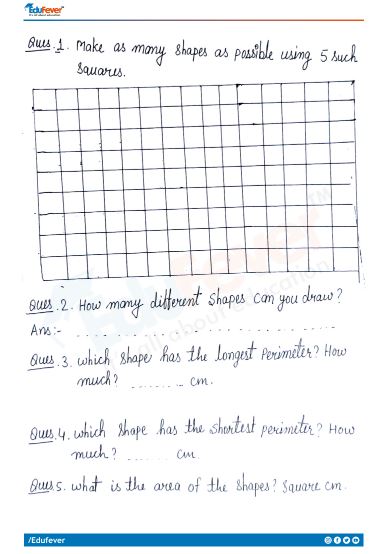 EduFever
Ques.1. Make as many shapes as possible using 5 such
squares.
Ques.2. How many different shapes can you draw?
Ans:- . . . . . . . . . . . . . . . . . . . .
Ques.3. which shape has the longest perimeter? How
much? ........ cm.
Ques.4. which shape has the shortest perimeter? How
much? ...... cm.
Ques.5. what is the area of the shapes? Square cm.
/Edufever